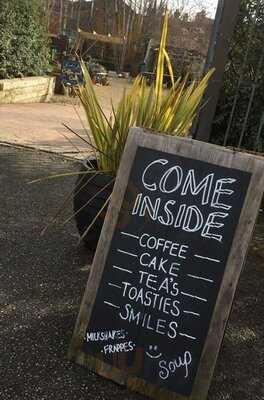 COME
INSIDE
– COFFEE –
– CAKE –
– TEA'S –
– TOASTIES –
– SMILES –
· MILKSHAKES ·
· FRAPPES ·
SOUP